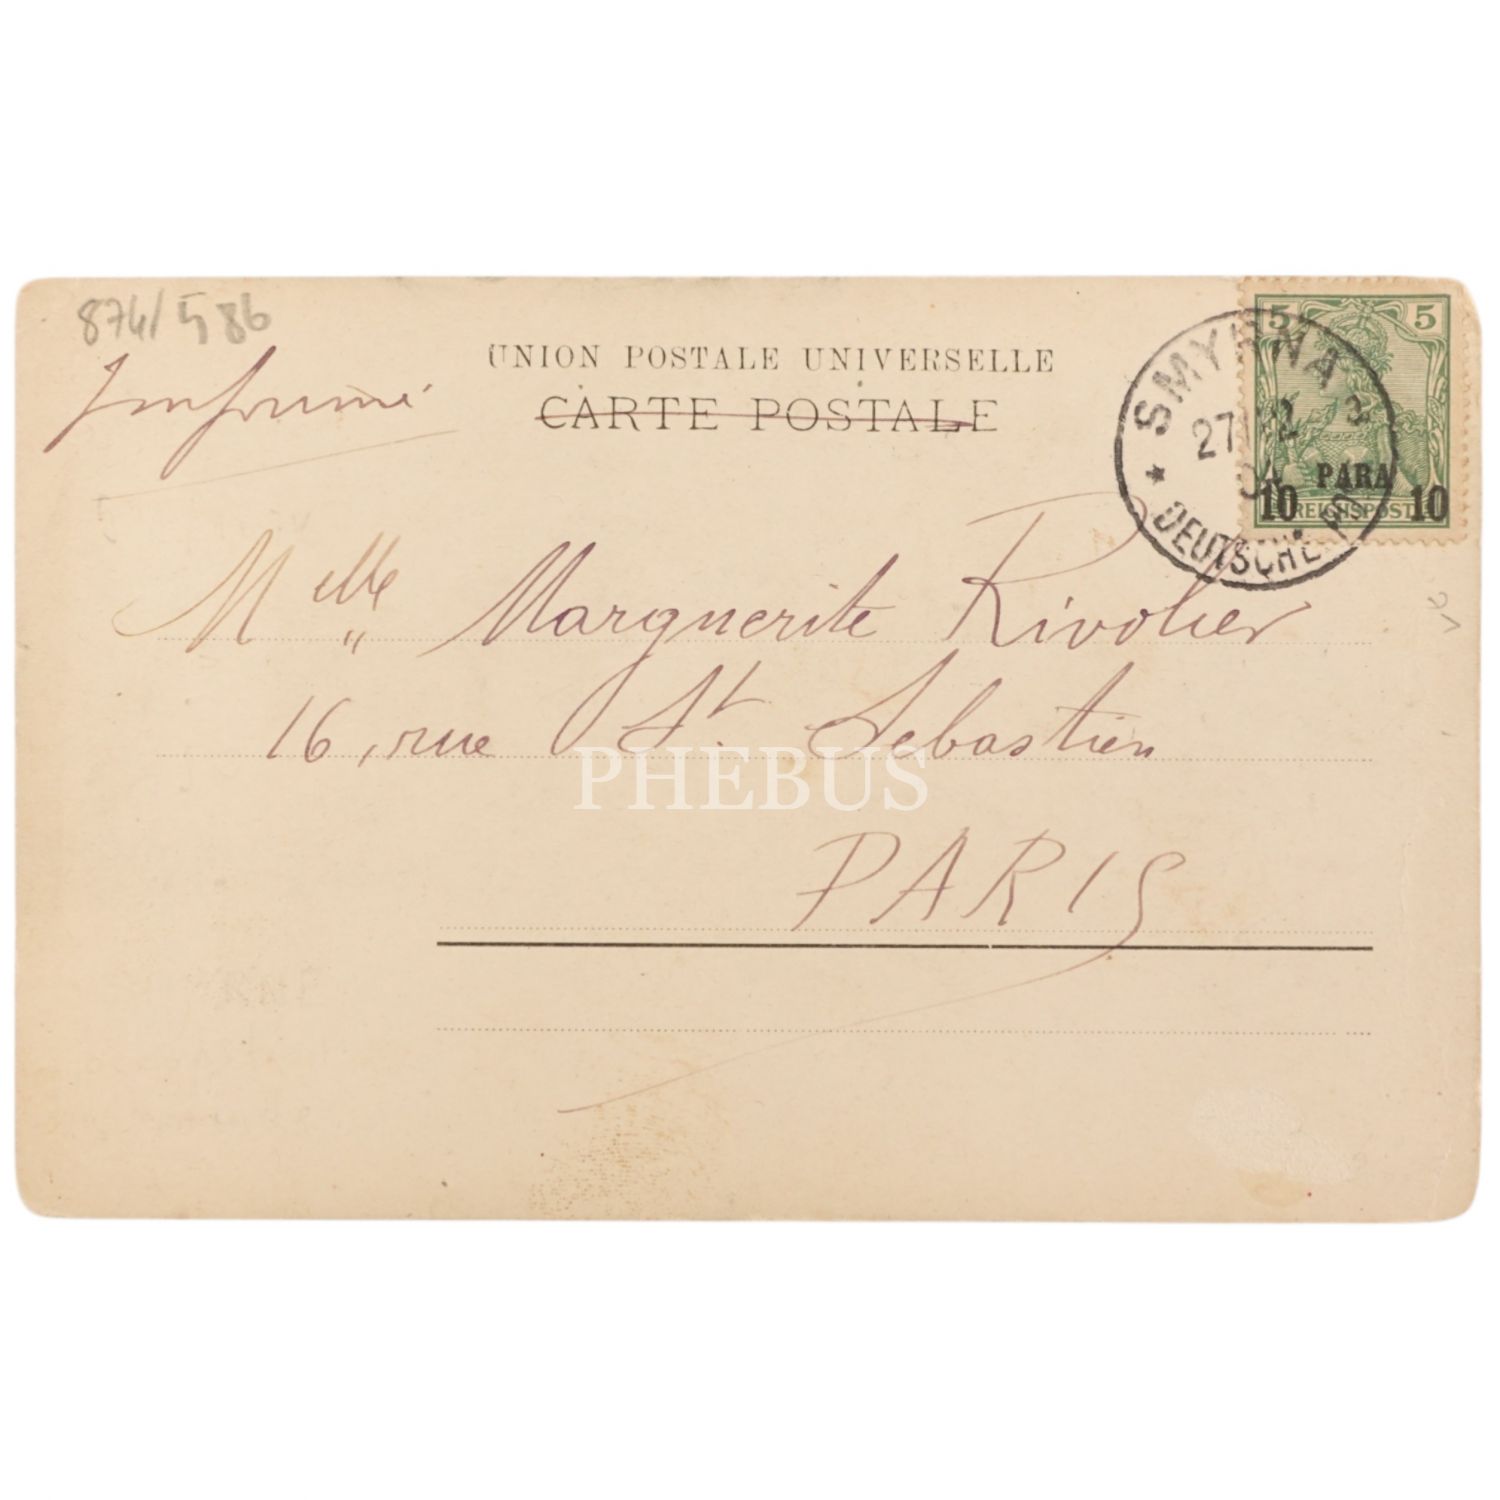 874/586
Imprimé
UNION POSTALE UNIVERSELLE
CARTE POSTALE
5 5
SMYRNA
27 2 3
PARA
10 10
REICHSPOST
DEUTSCHE
Melle Marguerite Rivolier
16, rue St. Sebastien
PHEBUS
PARIS